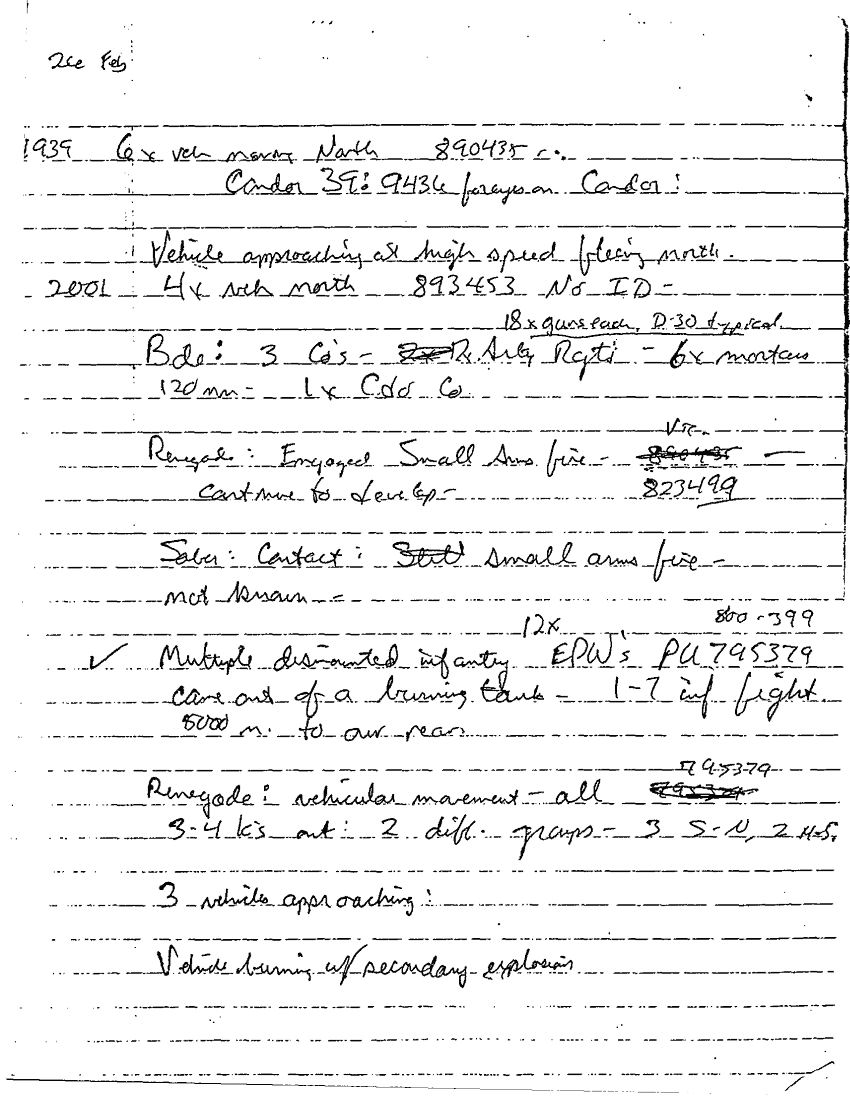 26 Feb
1939 6x veh moving North 890435
Condor 39: 9436 on Condor:
Vehicle approaching at high speed fleeing north.
2001 4x veh north 893453 No ID-
18x guns each, D-30 typical
Bde: 3 Co's - 2x Arty Rgts - 6x mortars
120 mm - 1x Cdo Co
Vic.
Renegade: Engaged Small Arms fire - 890435 -
continue to develop - 823499
Saber: Contact: Still small arms fire -
not known -
12x 800-399
✓ Multiple dismounted infantry EPW's PU 795379
came out of a burning tank - 1-7 inf fight
5000 m. to our rear
795379
Renegade: vehicular movement - all
3-4 k's out: 2 diff. groups - 3 S-N, 2 N-S.
3 vehicles approaching:
Vehicle burning w/ secondary explosions